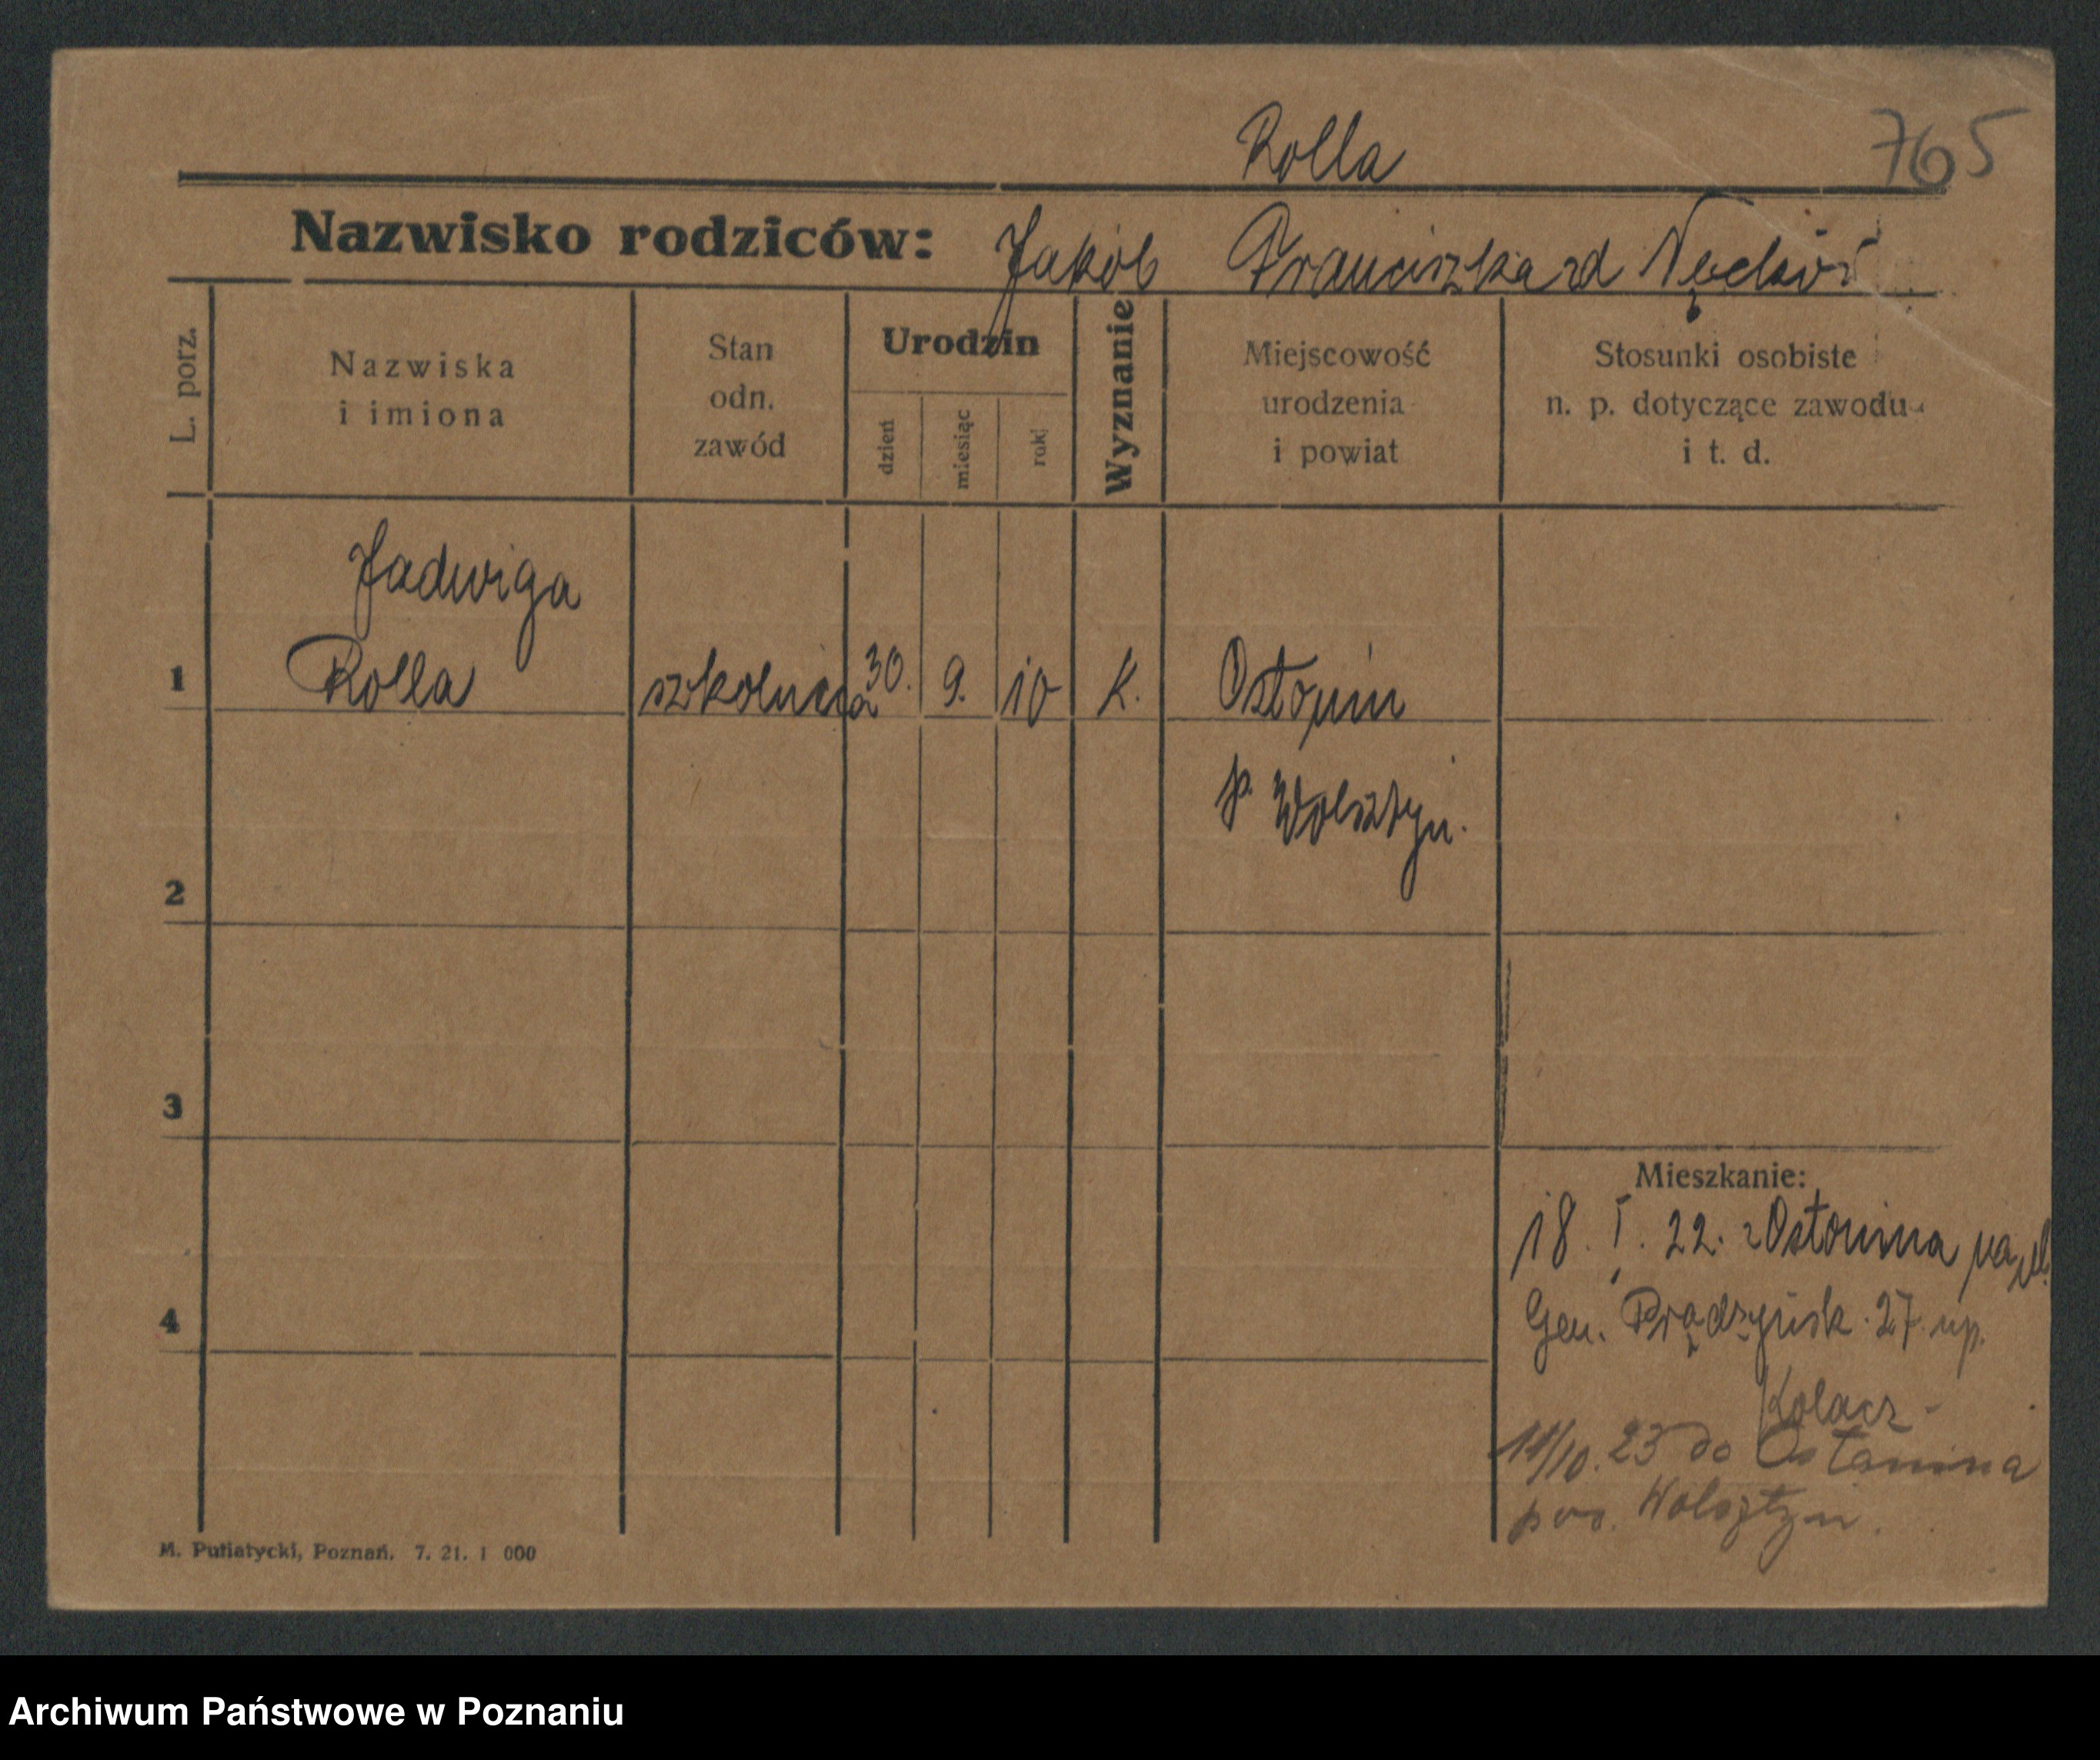 Rolla
765
Nazwisko rodziców: Jakób Franciszka zd
L. porz.
Nazwiska
i imiona
Stan
odn.
zawód
Urodzin
dzień
miesiąc
rok
Wyznanie
Miejscowość
urodzenia
i powiat
Stosunki osobiste
n. p. dotyczące zawodu
i t. d.
Jadwiga
1 Rolla szkolnica 30. 9. 10 K.
p. Wolsztyn.
2
3
Mieszkanie:
18. I. 22. z Ostonina na ul.
4
Gen. Prądzyńsk. 27. up.
Kolacz
11/10. 23 do Ostonina
pow. Wolsztyn.
M. Putiatycki, Poznań. 7. 21. 1 000
Archiwum Państwowe w Poznaniu